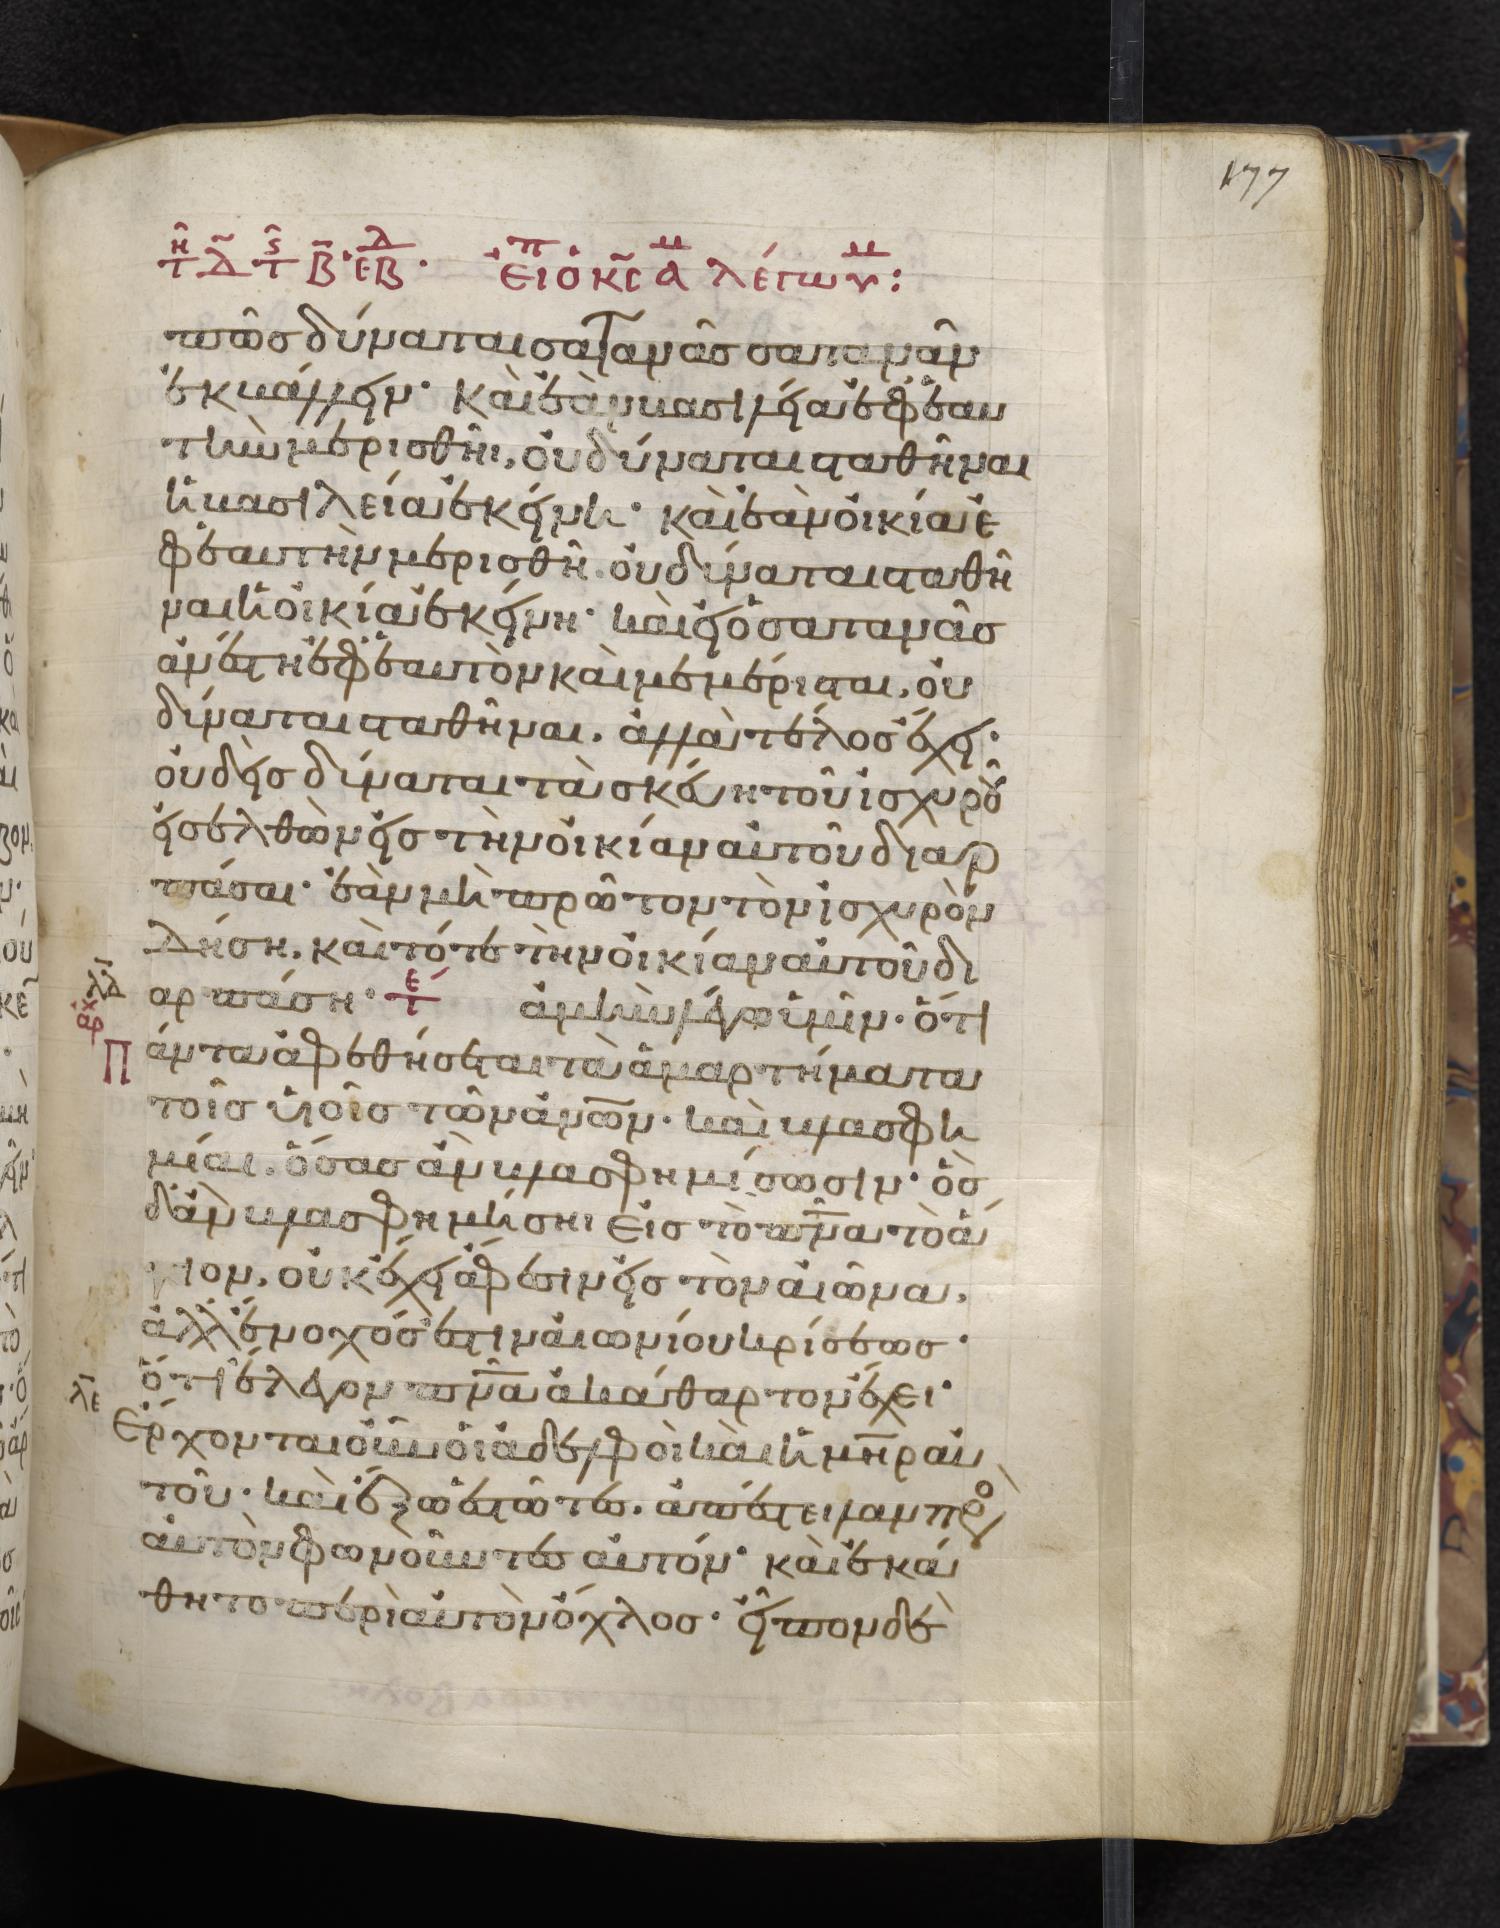 177
τῇ Δ τ ϛ Β ἑβδ · εἶπ ὁ κς ἀμ λέγων ὑμ :
πῶς δύναται σατανᾶς σατανᾶν
ἐκβάλλειν· καὶ ἐὰν βασιλεία ἐφ' ἑαυ
τὴν μερισθῆι, οὐ δύναται σταθῆναι
ἡ βασιλεία ἐκείνη· καὶ ἐὰν οἰκία ἐ
φ' ἑαυτὴν μερισθῆ. οὐ δύναται σταθῆ
ναι ἡ οἰκία ἐκείνη· καὶ εἰ ὁ σατανᾶς
ἀνέστη ἐφ' ἑαυτὸν καὶ μεμέρισται, οὐ
δύναται σταθῆναι. ἀλλὰ τέλος ἔχει·
οὐδεὶς δύναται τὰ σκεύη τοῦ ἰσχυροῦ
εἰσελθὼν εἰς τὴν οἰκίαν αὐτοῦ διαρ
πάσαι· ἐὰν μὴ πρῶτον τὸν ἰσχυρὸν
δήση, καὶ τότε τὴν οἰκίαν αὐτοῦ δι
λδ
αρπάση· τέ ἀμὴν λέγω ὑμῖν· ὅτι
ἀρχ
Πάντα ἀφεθήσεται τὰ ἁμαρτήματα
τοῖς υἱοῖς τῶν ἀνων· καὶ βλασφη
μίαι. ὅσας ἀν βλασφημίσωσιν· ὃς
δ' ἀν βλασφημήσηι εἰς τὸ πνα τὸ ἅ
γιον, οὐκ ἔχει ἄφεσιν εἰς τὸν αἰῶνα,
ἀλλ' ἔνοχός ἐστιν αἰωνίου κρίσεως·
ὅτι ἔλεγον πνα ἀκάθαρτον ἔχει·
λε
Ἔρχονται οὖν οἱ ἀδελφοὶ καὶ ἡ μηρ αὐ
τοῦ· καὶ ἔξω ἑστῶτες. ἀπέστειλαν πρὸς
αὐτὸν φωνοῦντες αὐτόν· καὶ ἐκά
θητο περὶ αὐτὸν ὄχλος· εἶπον δὲ